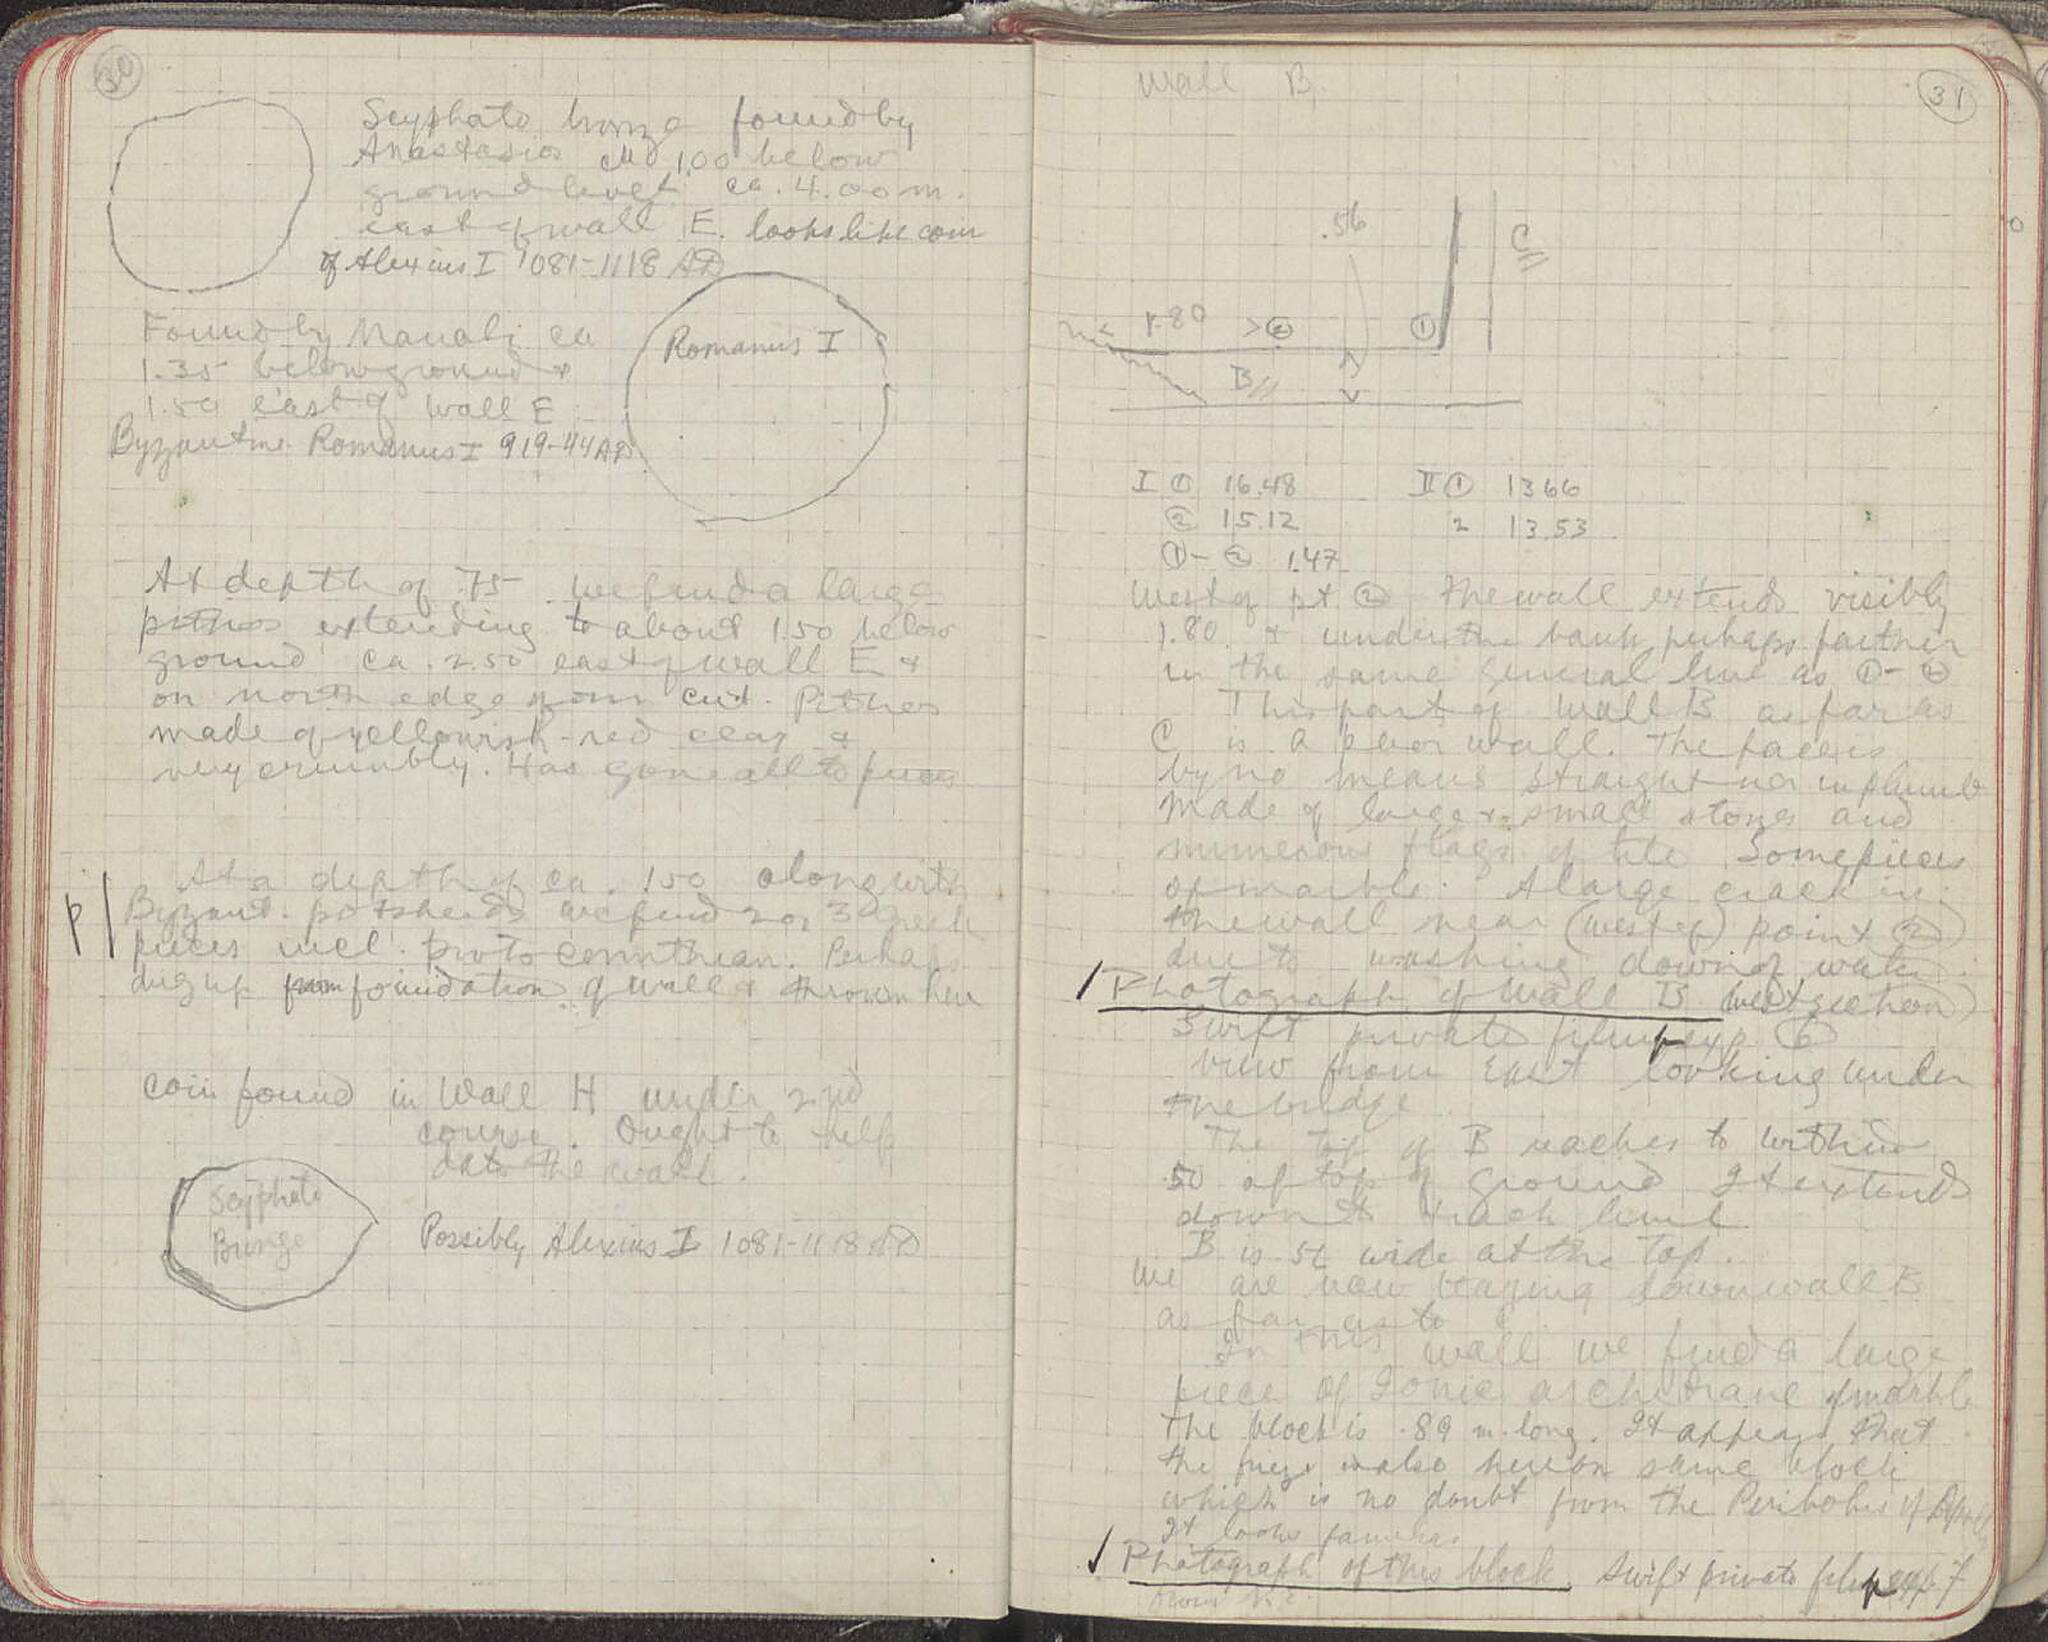 30
Scyphate bronze found by
Anastasios 1.00 below
ground level ca. 4.00 m.
east of wall E. looks like coin
of Alexius I 1081-1118 AD
Found by Manoli ca
1.35 below ground +
1.50 east of wall E
Byzantine Romanus I 919-44 AD
Romanus I
At depth of .75 we find a large
pithos extending to about 1.50 below
ground ca. 2.50 east of wall E +
on north edge of our cut. Pithos
made of yellowish-red clay &
very crumbly. Has gone all to pieces
At a depth of ca. 1.50 along with
P/ Byzant. potsherds we find 2 or 3 Greek
pieces incl. proto corinthian. Perhaps
dug up from foundation of wall & thrown here
coin found in Wall H under 2nd
course. Ought to help
date the wall.
Scyphate
Bronze
Possibly Alexius I 1081-1118 AD
Wall B
31
.56
C
1.80 > ②
①
B
I ① 16.48 II ① 13 66
② 15.12 2 13.53
① - ② 1.47
West of pt ② the wall extends visibly
1.80 + under the bank perhaps farther
in the same general line as ① - ②
This part of Wall B as far as
C is a poor wall. The face is
by no means straight nor in plumb
Made of large + small stones and
numerous frags of tile Some pieces
of marble. A large crack in
the wall near (west of) point ②
due to washing down of water.
/ Photograph of Wall B (west section)
Swift private film exp. 6
view from East looking under
the bridge
The top of B reaches to within
.50 of top of ground It extends
down to track level
B is .56 wide at the top.
We are now tearing down wall B
as far as to C
In this wall we find a large
piece of Ionic architrave of marble
The block is .89 m. long. It appears that
the frieze is also here on same block
which is no doubt from the Peribolos of
It looks familiar.
/ Photograph of this block. Swift private film exp. 7